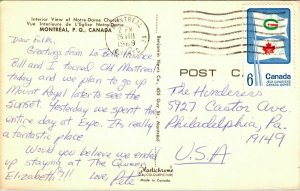 Interior View of Notre-Dame Church
Vue Interieure de L'Eglise Notre-Dame
MONTREAL, P. Q., CANADA
MONTREAL
PM
1969
Dear folks,
Greetings from La Belle Province
Bill and I toured Old Montreal
today and we plan to go up
Mount Royal later to see the
sunset. Yesterday we spent the
entire day at Expo. It's really a
fantastic place.
Would you believe we ended
up staying at The Queen
Elizabeth?!! Love,
Pete
Benjamin News Co.
Montreal
Plastichrome
Made in Canada
POST C
Canada
6
The Hendersons
5927 Castor Ave.
Philadelphia, Pa.
19149
U.S.A